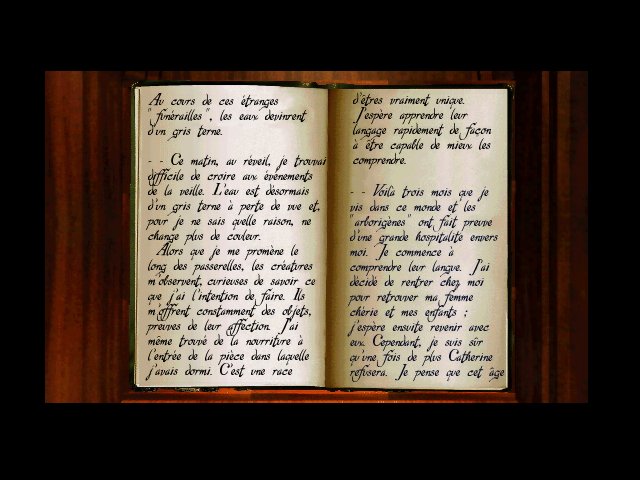 Au cours de ces étranges
"funérailles", les eaux devinrent
d'un gris terne.
- - Ce matin, au réveil, je trouvai
difficile de croire aux événements
de la veille. L'eau est désormais
d'un gris terne à perte de vue et,
pour je ne sais quelle raison, ne
change plus de couleur.
Alors que je me promène le
long des passerelles, les créatures
m'observent, curieuses de savoir ce
que j'ai l'intention de faire. Ils
m'offrent constamment des objets,
preuves de leur affection. J'ai
même trouvé de la nourriture à
l'entrée de la pièce dans laquelle
j'avais dormi. C'est une race
d'êtres vraiment unique.
J'espère apprendre leur
langage rapidement de façon
à être capable de mieux les
comprendre.
- - Voilà trois mois que je
vis dans ce monde et les
"arborigènes" ont fait preuve
d'une grande hospitalité envers
moi. Je commence à
comprendre leur langue. J'ai
décidé de rentrer chez moi
pour retrouver ma femme
chérie et mes enfants ;
j'espère ensuite revenir avec
eux. Cependant, je suis sûr
qu'une fois de plus Catherine
refusera. Je pense que cet âge